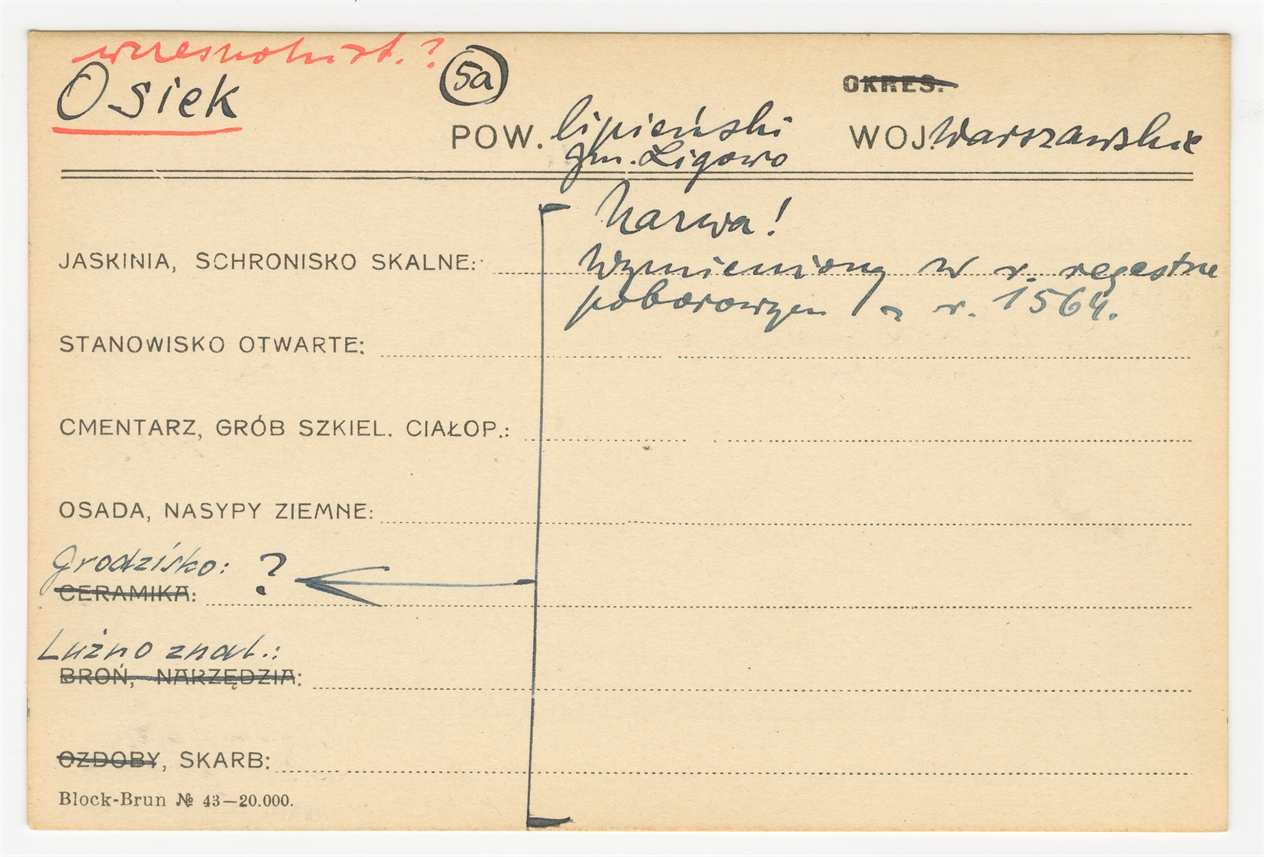 wczesnohist.?
Osiek
5a
OKRES.
POW. lipieński
WOJ. Warszawskie
gm. Ligowo
Nazwa!
JASKINIA, SCHRONISKO SKALNE:
Wymieniony w r. regestrze
poborowym z r. 1564.
STANOWISKO OTWARTE:
CMENTARZ, GRÓB SZKIEL. CIAŁOP.:
OSADA, NASYPY ZIEMNE:
Grodzisko: ?
CERAMIKA:
Luźno znal.:
BROŃ, NARZĘDZIA:
OZDOBY, SKARB:
Block-Brun № 43—20.000.